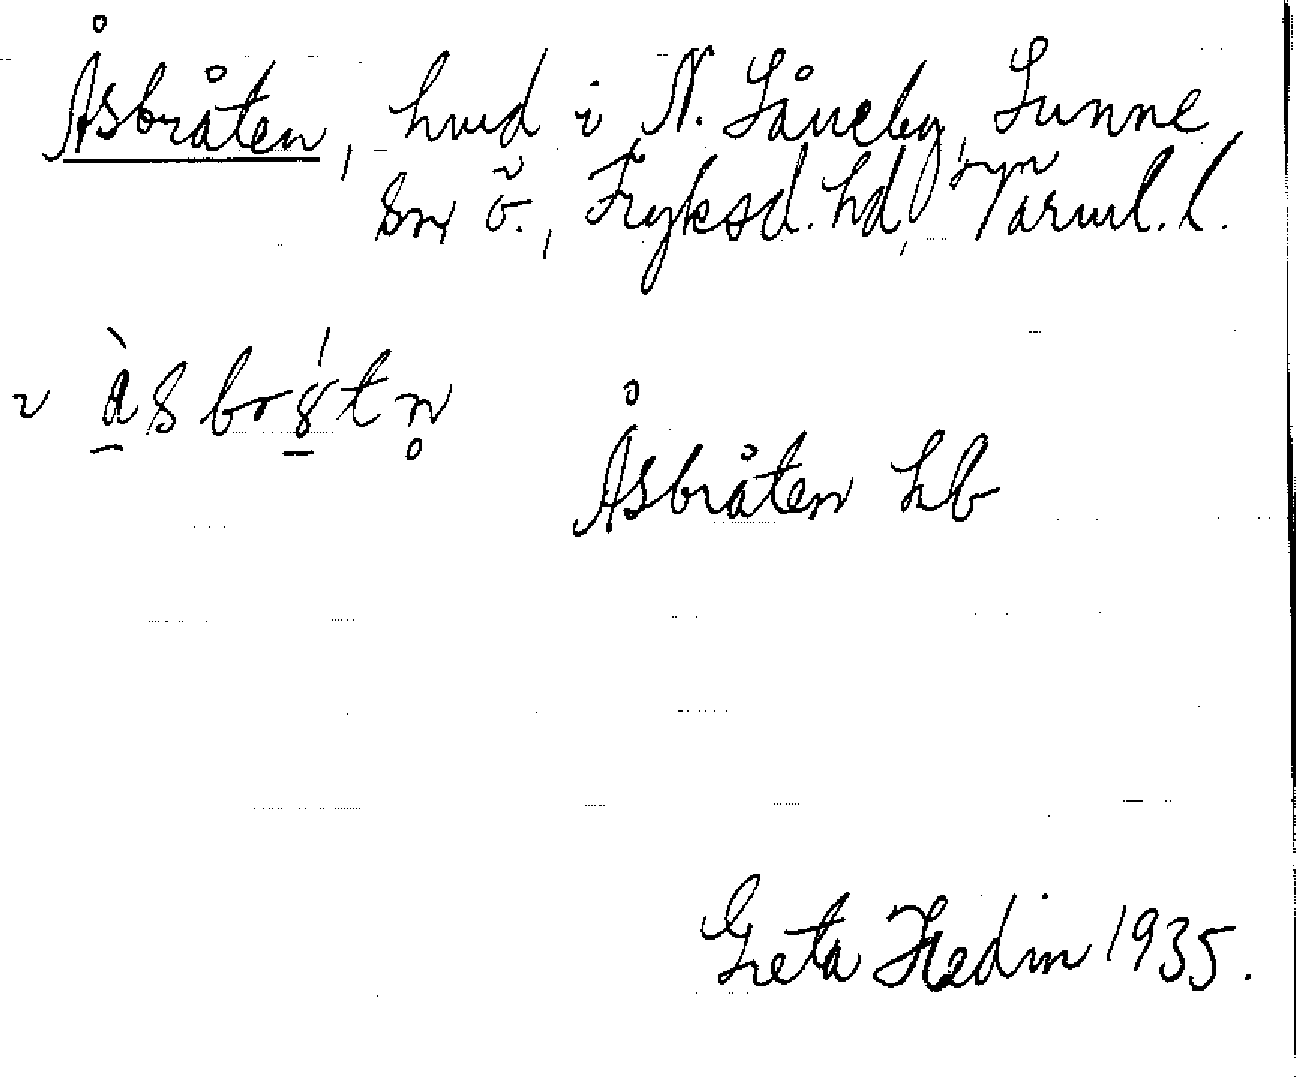 Åsbråten, hmd i N. Låneby, Sunne
sn ö., Fryksd. hd, Värml. l.
åsbråtn
Åsbråten hb
Greta Hedin 1935.